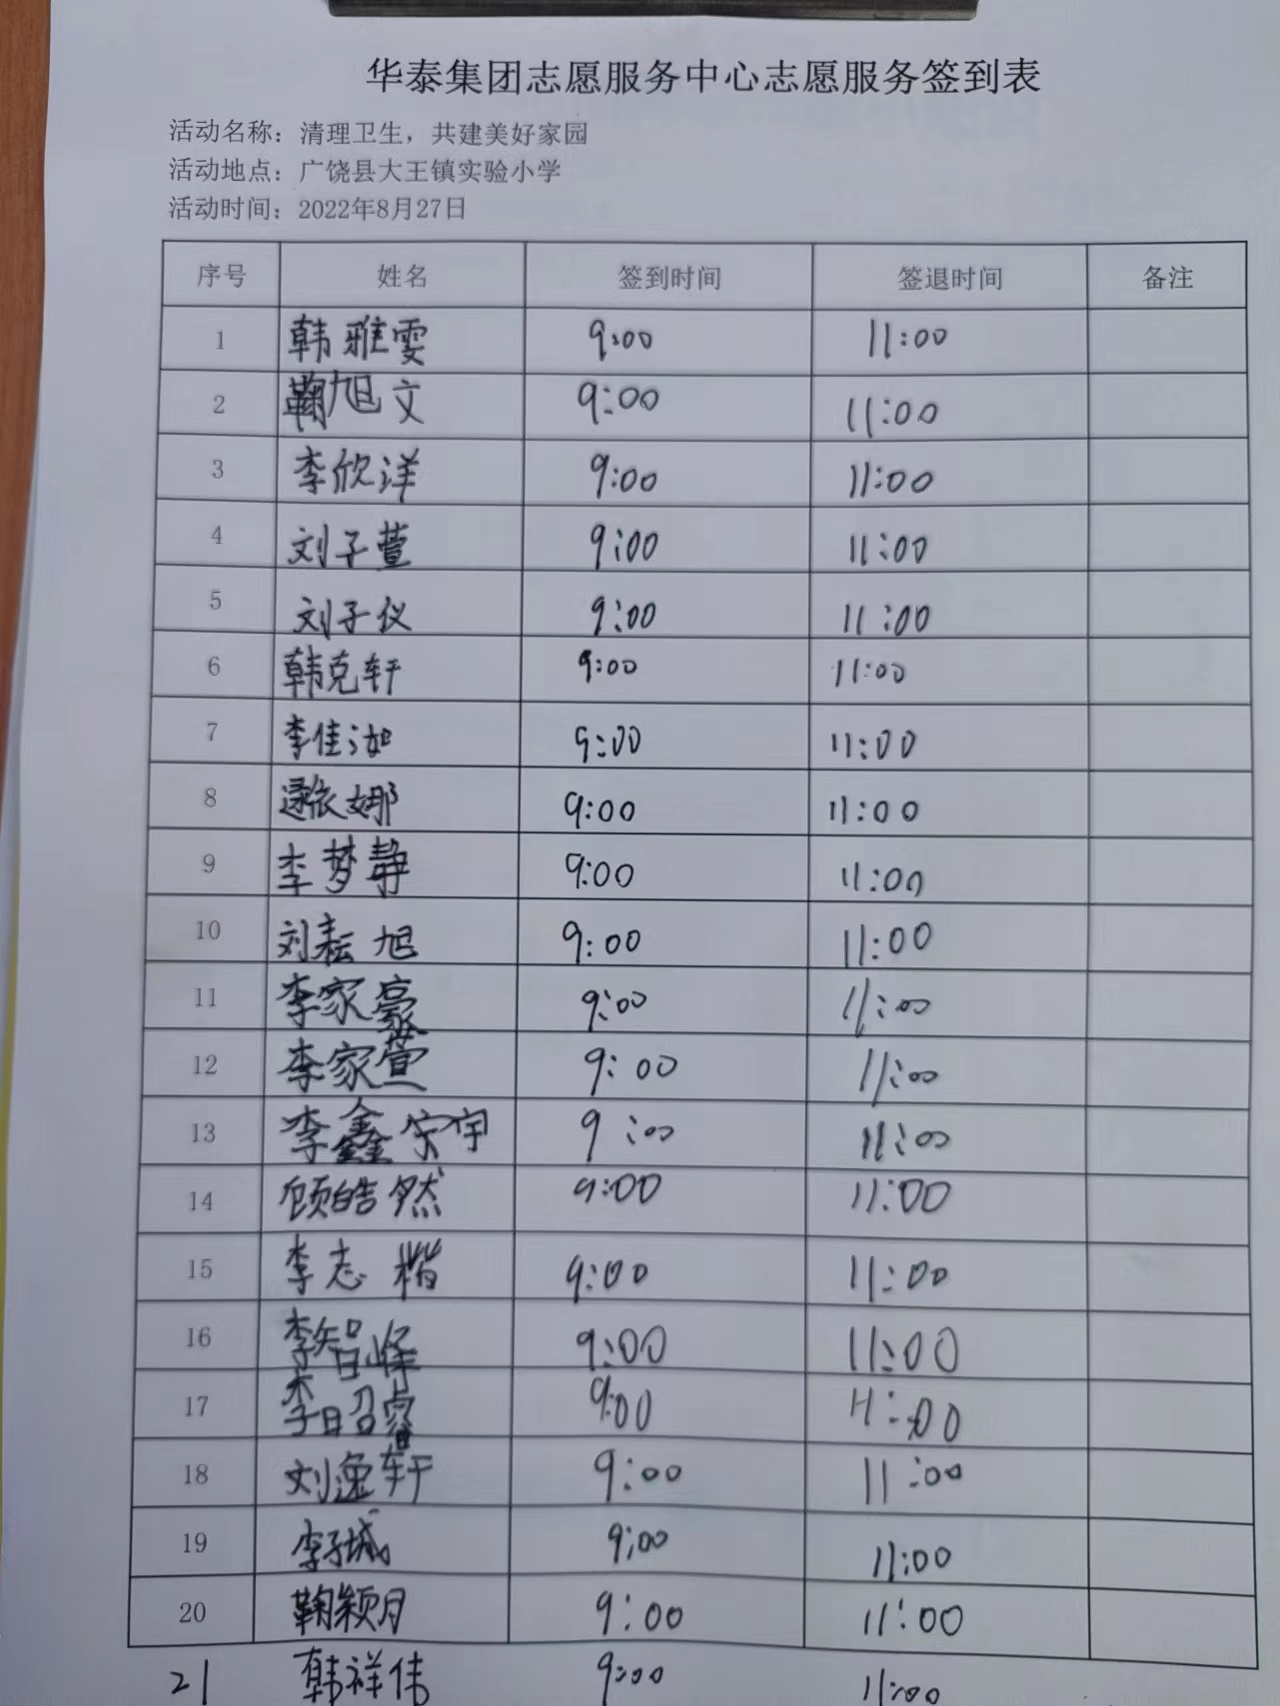 华泰集团志愿服务中心志愿服务签到表
活动名称：清理卫生，共建美好家园
活动地点：广饶县大王镇实验小学
活动时间：2022年8月27日
序号 姓名 签到时间 签退时间 备注
1 韩雅雯 9:00 11:00
2 鞠旭文 9:00 11:00
3 李欣洋 9:00 11:00
4 刘子萱 9:00 11:00
5 刘子仪 9:00 11:00
6 韩克轩 9:00 11:00
7 李佳汝 9:00 11:00
8 逯依娜 9:00 11:00
9 李梦静 9:00 11:00
10 刘耘旭 9:00 11:00
11 李家豪 9:00 11:00
12 李家萱 9:00 11:00
13 李鑫宗宇 9:00 11:00
14 顾皓然 9:00 11:00
15 李志楷 9:00 11:00
16 李智峰 9:00 11:00
17 李昭睿 9:00 11:00
18 刘逸轩 9:00 11:00
19 李子城 9:00 11:00
20 鞠颖月 9:00 11:00
21 韩祥伟 9:00 11:00